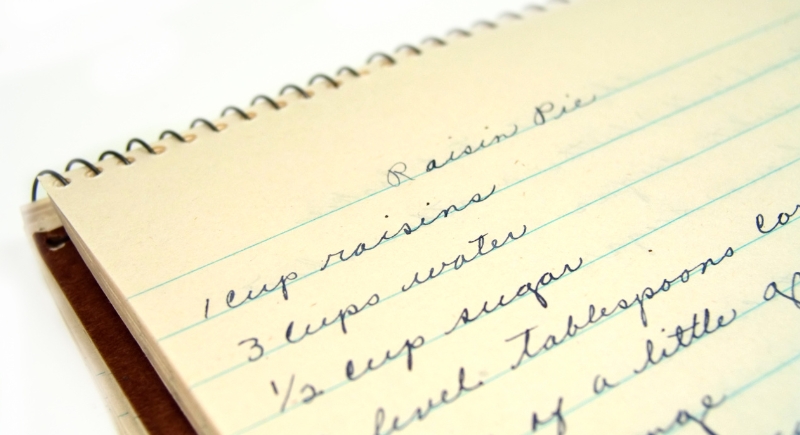 Raisin Pie
1 cup raisins
3 cups water
1/2 cup sugar
level tablespoons
of a little